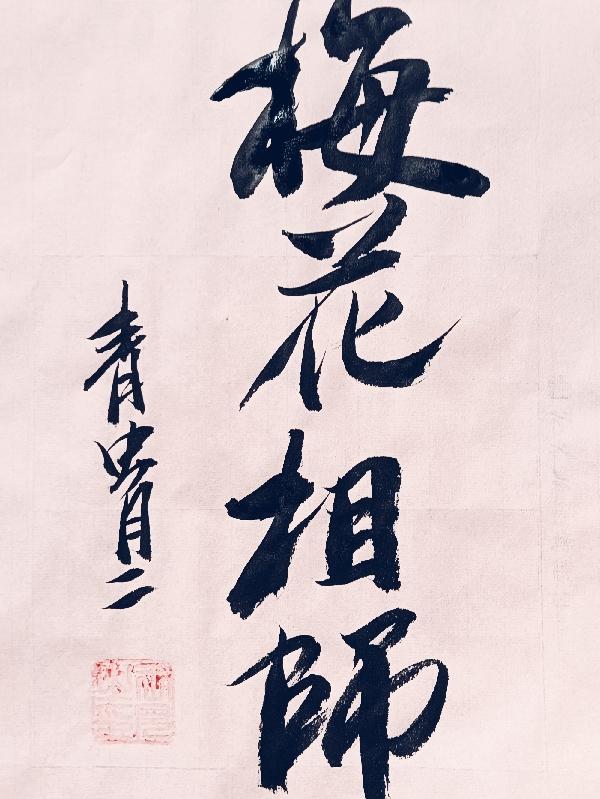 梅花相師
青月二